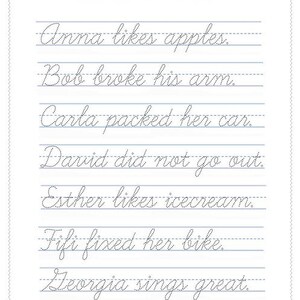 Anna likes apples.
Bob broke his arm.
Carla packed her car.
David did not go out.
Esther likes icecream.
Fifi fixed her bike.
Georgia sings great.